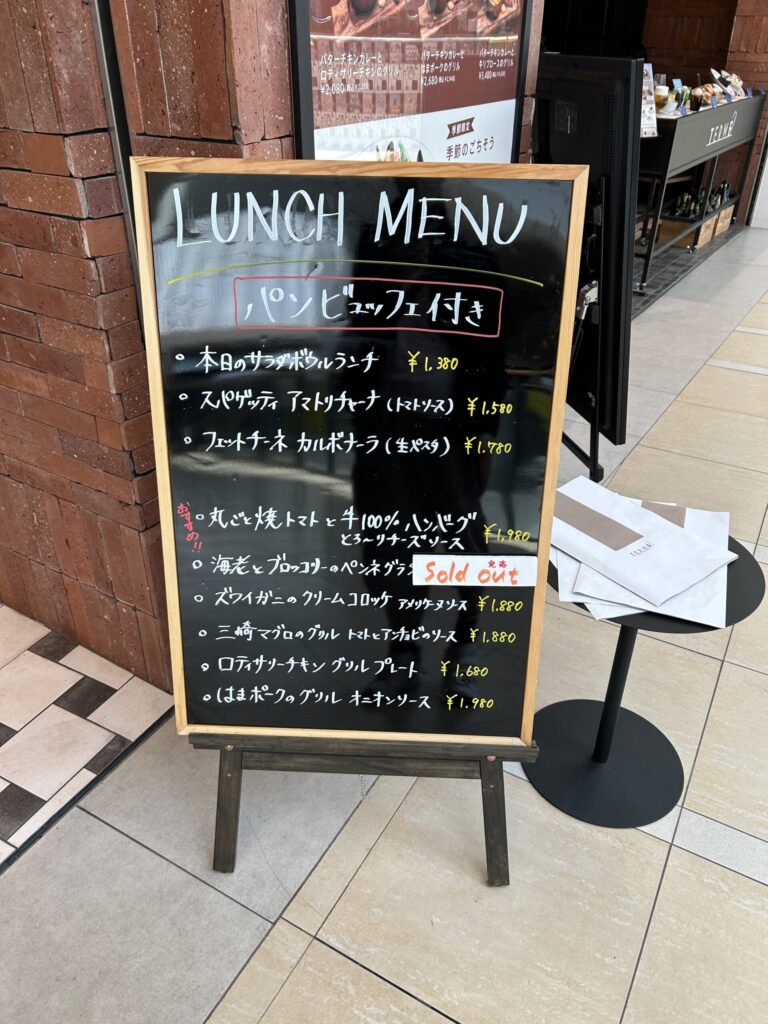 バターチキンカレーと
ロティサリーチキンのグリル
¥2,080
バターチキンカレーと
はまポークのグリル
¥2,680
バターチキンカレーと
¥3,480
季節限定
季節のごちそう
TERMÉ
LUNCH MENU
パンビュッフェ付き
本日のサラダボウルランチ ¥1.380
スパゲッティ アマトリチャーナ (トマトソース) ¥1.580
フェットチーネ カルボナーラ (生パスタ) ¥1.780
おすすめ!!
丸ごと焼トマトと牛100%ハンバーグ
とろ〜りチーズソース ¥1.980
海老とブロッコリーのペンネグラ
完売
Sold out
ズワイガニのクリームコロッケ アメリケーヌソース ¥1.880
三崎マグロのグリル トマトとアンチョビのソース ¥1.880
ロティサリーチキン グリル プレート ¥1.680
はまポークのグリル オニオンソース ¥1.980